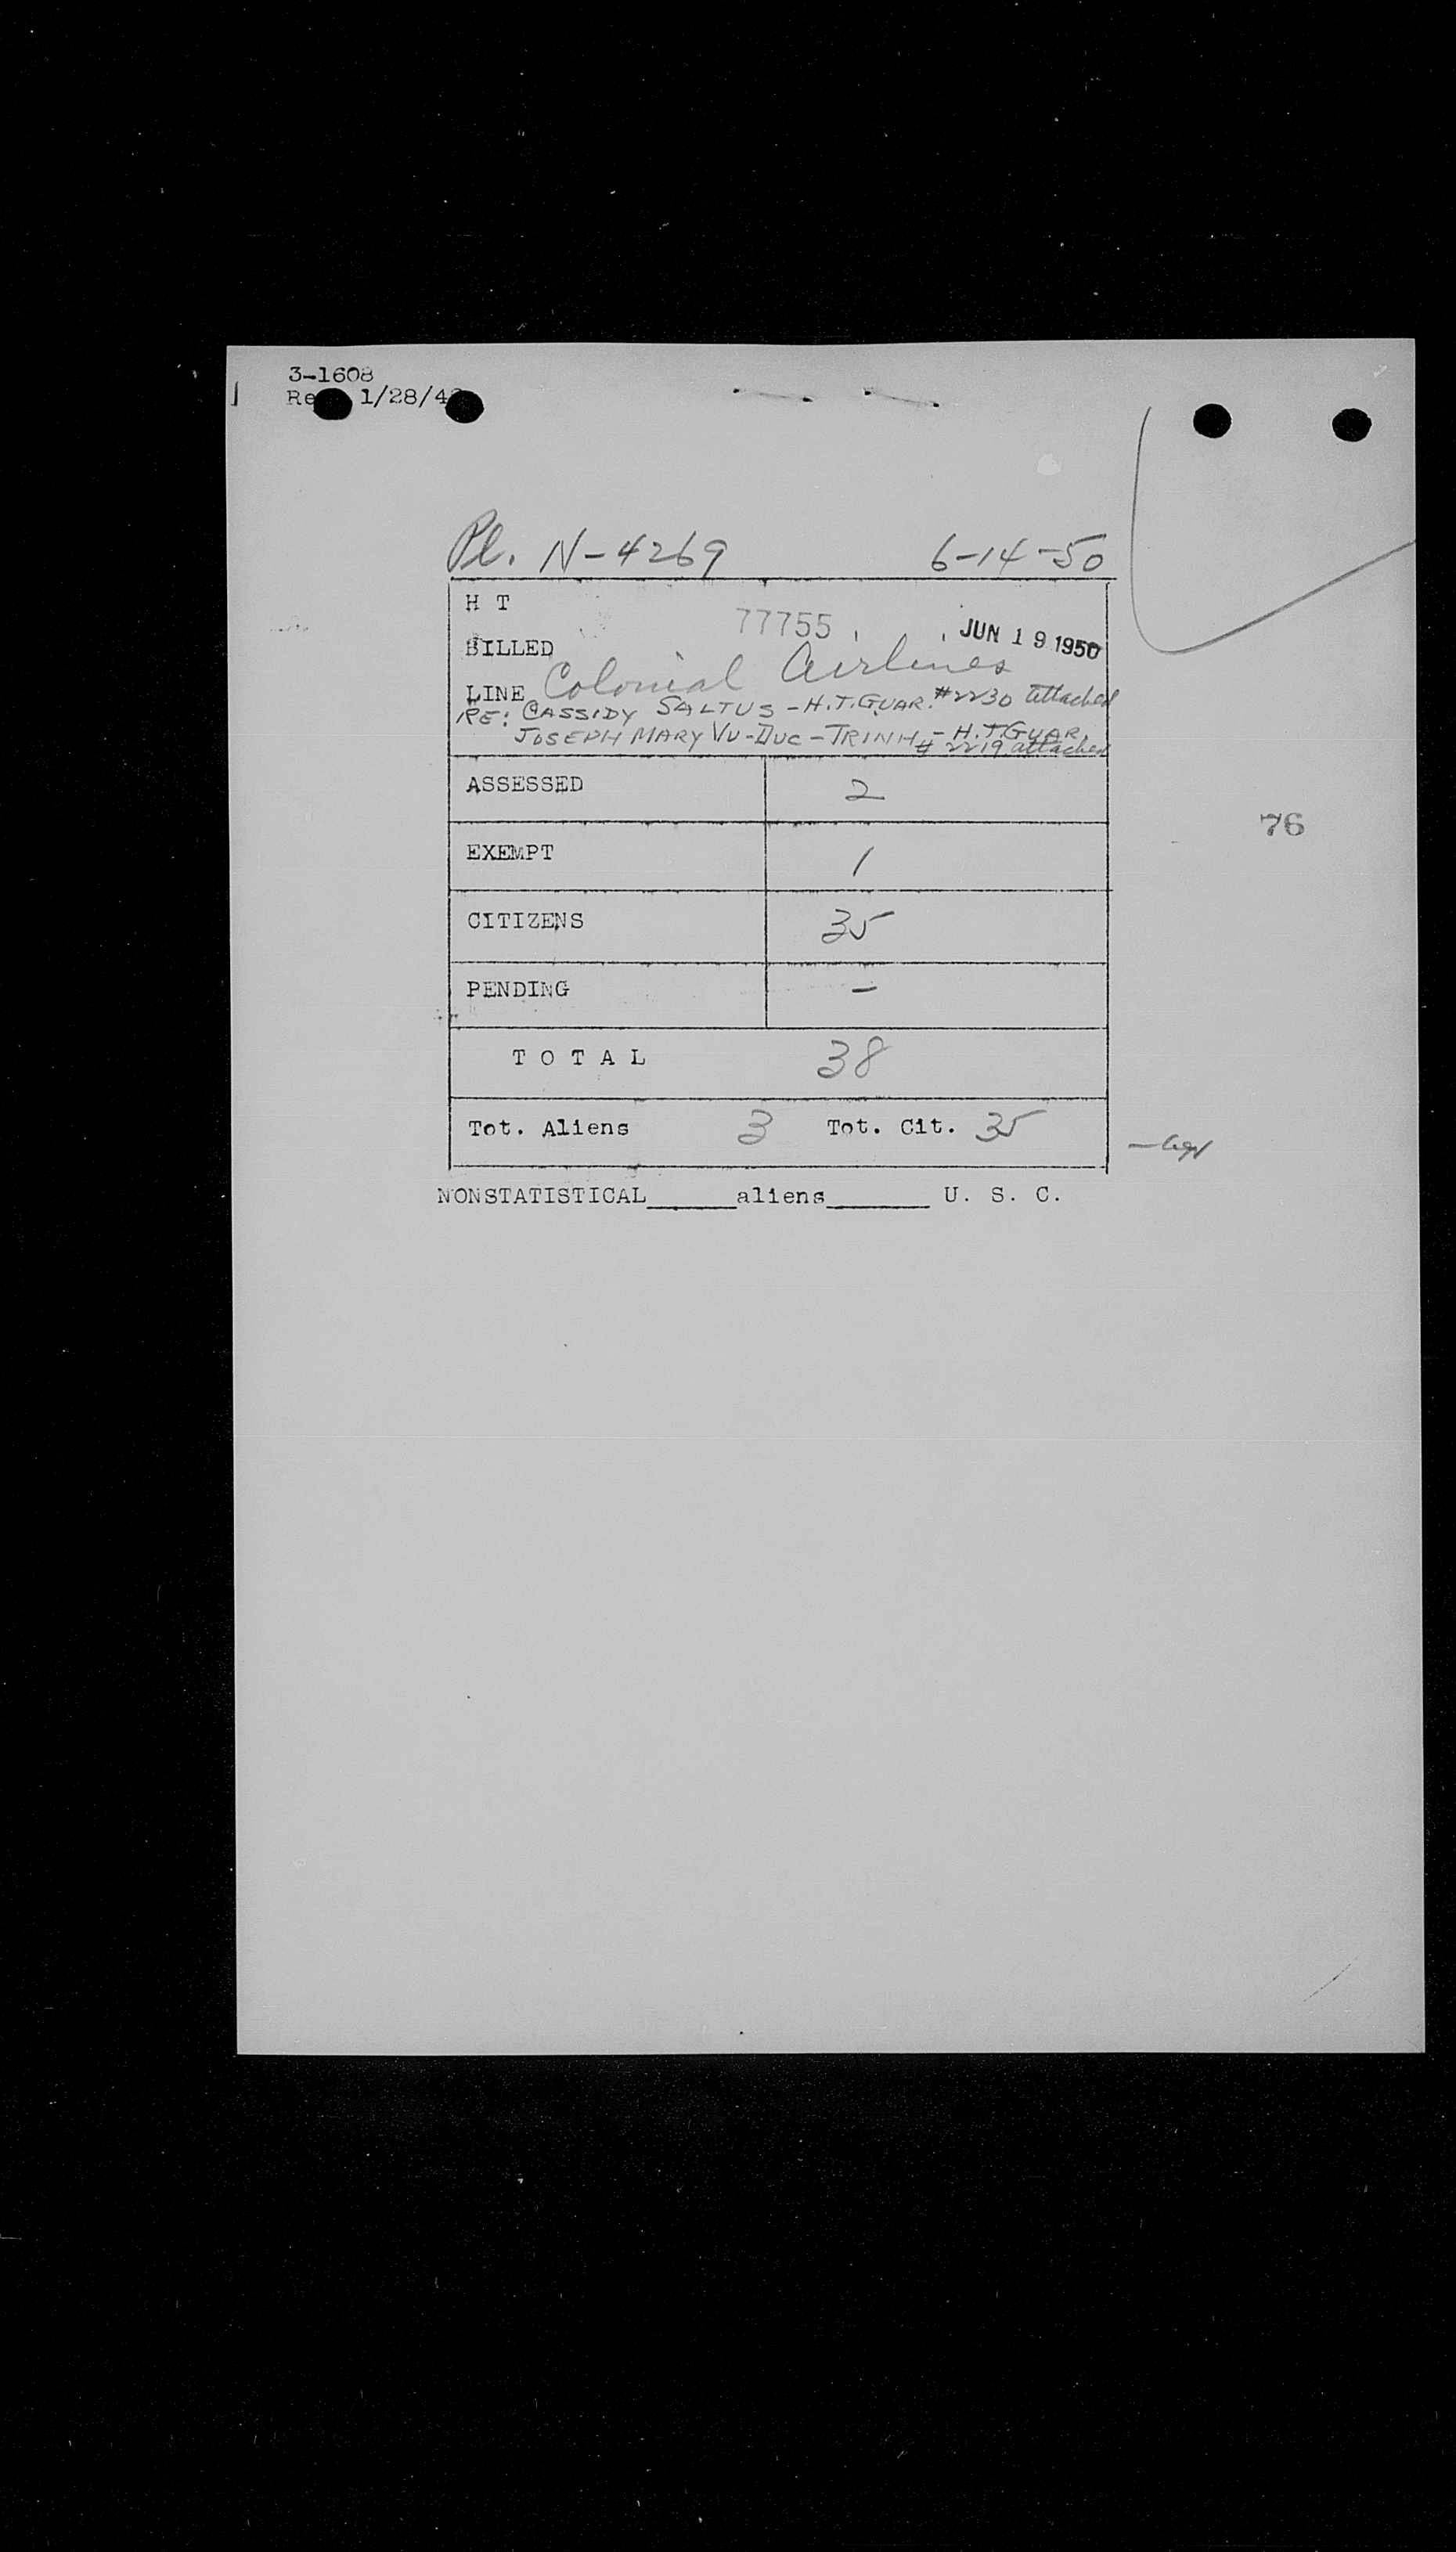 3-1608
Re 1/28/4
Pl. N-4269 6-14-50
H T
77755 JUN 19 1950
BILLED
LINE Colonial Airlines
RE: CASSIDY SALTUS - H.T. GUAR. #2230 attached
JOSEPH MARY VU-DUC-TRINH - H.T. GUAR.
# 2219 attached
ASSESSED 2
76
EXEMPT 1
CITIZENS 35
PENDING -
TOTAL 38
Tot. Aliens 3 Tot. Cit. 35
NONSTATISTICAL______aliens_______ U. S. C.